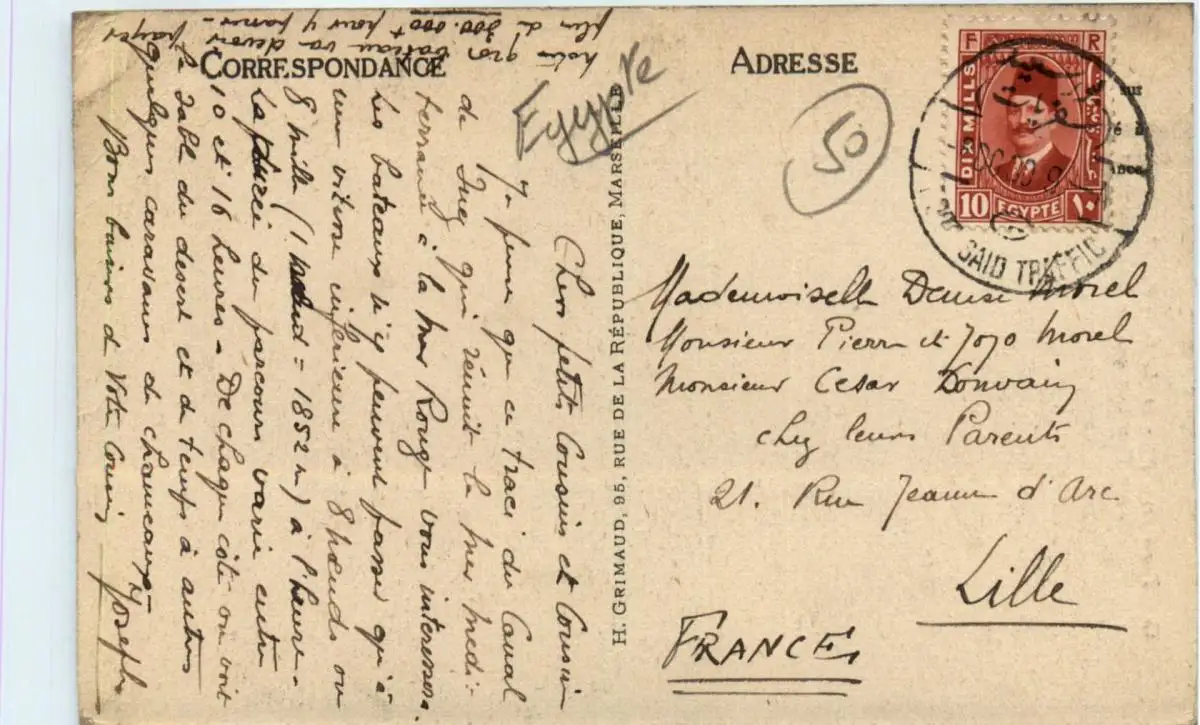 CORRESPONDANCE
ADRESSE
Egypte
50
F R
DIX MILLS
10 EGYPTE ١٠
SAID TRAFFIC
Chers petits Cousins et Cousin
Je pense que ce tracé du Canal
de Suez qui réunit la mer Médi-
terranée à la mer Rouge vous intéressera.
Les bateaux n'y peuvent passer qu'à
une vitesse inférieure à 8 nœuds ou
8 mille (1 nœud = 1852 m) à l'heure -
La durée du parcours varie entre
10 et 16 heures - De chaque côté on voit
le sable du désert et de temps à autres
quelques caravanes de chameaux -
Bons baisers de Votre Cousin Joseph
notre gros bateau va devoir payer
plus de 300.000 + pour y passer -
H. GRIMAUD, 95, RUE DE LA RÉPUBLIQUE, MARSEILLE
Mademoiselle Denise Morel
Monsieur Pierre et Jojo Morel
Monsieur Cesar
chez leurs Parents
21. Rue Jeanne d'Arc
Lille
FRANCE